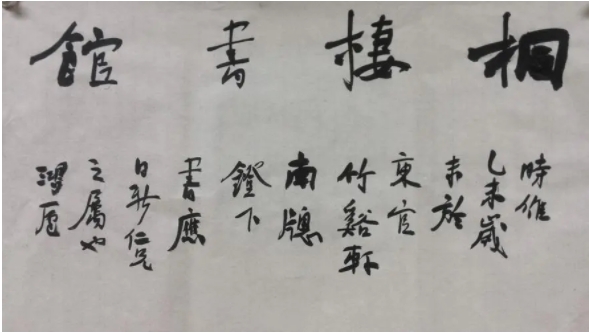 桐棲書館
時維
乙未歲
末於
東官
竹谿軒
南牕
鐙下
書應
日新仁兄
之屬也